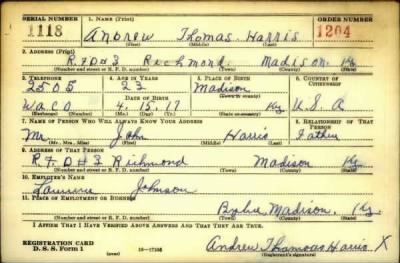 SERIAL NUMBER 1. NAME (Print) ORDER NUMBER
1118 Andrew Thomas Harris 1204
(First) (Middle) (Last)
2. ADDRESS (Print)
R.F.D #3 Richmond Madison Ky
(Number and street or R. F. D. number) (Town) (County) (State)
3. TELEPHONE 4. AGE IN YEARS 5. PLACE OF BIRTH 6. COUNTRY OF CITIZENSHIP
2505 23 Madison
DATE OF BIRTH (Town or county)
Waco 4. 15. 17 Ky U.S.A
(Exchange) (Number) (Mo.) (Day) (Yr.) (State or country)
7. NAME OF PERSON WHO WILL ALWAYS KNOW YOUR ADDRESS 8. RELATIONSHIP OF THAT PERSON
Mr. John Harris Father
(Mr., Mrs., Miss) (First) (Middle) (Last)
9. ADDRESS OF THAT PERSON
R.F.D #3 Richmond Madison Ky.
(Number and street or R. F. D. number) (Town) (County) (State)
10. EMPLOYER'S NAME
Johnson
11. PLACE OF EMPLOYMENT OR BUSINESS
Madison, Ky.
(Number and street or R. F. D. number) (Town) (County) (State)
I AFFIRM THAT I HAVE VERIFIED ABOVE ANSWERS AND THAT THEY ARE TRUE.
REGISTRATION CARD
D. S. S. Form 1 (over) Andrew Thomas Harris X
(Registrant's signature)